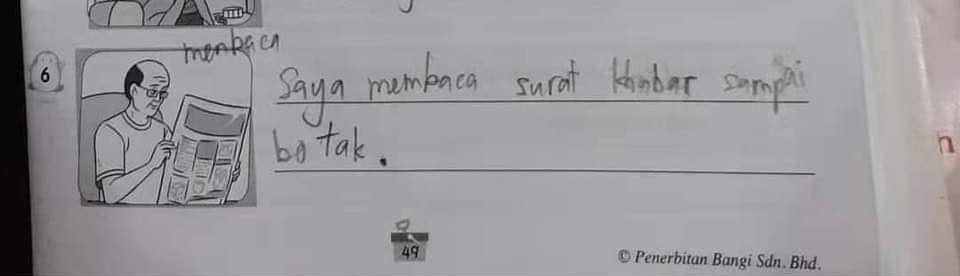 menbaca
6
Saya membaca surat khabar sampai
botak.
49
© Penerbitan Bangi Sdn. Bhd.